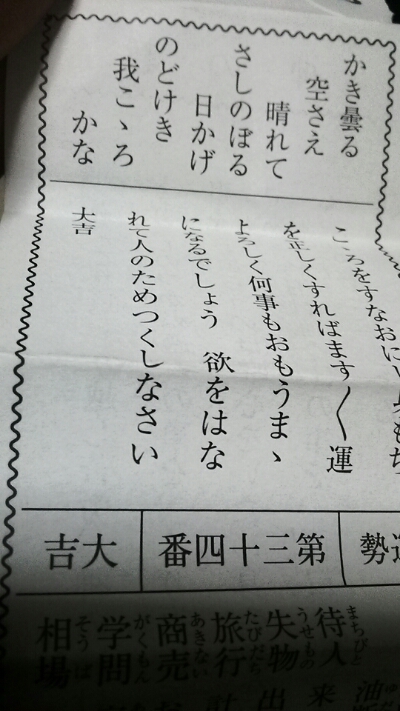 かき曇る
空さえ
晴れて
さしのぼる
日かげ
のどけき
我こゝろ
かな
こゝろをすなおにし身もち
を正しくすればます〳〵運
よろしく何事もおもうまゝ
になるでしょう 欲をはな
れて人のためつくしなさい
大吉
運勢
第三十四番
大吉
待人
まちびと
失物
うせもの
旅行
たびだち
商売
あきない
学問
がくもん
相場
そうば
来
出